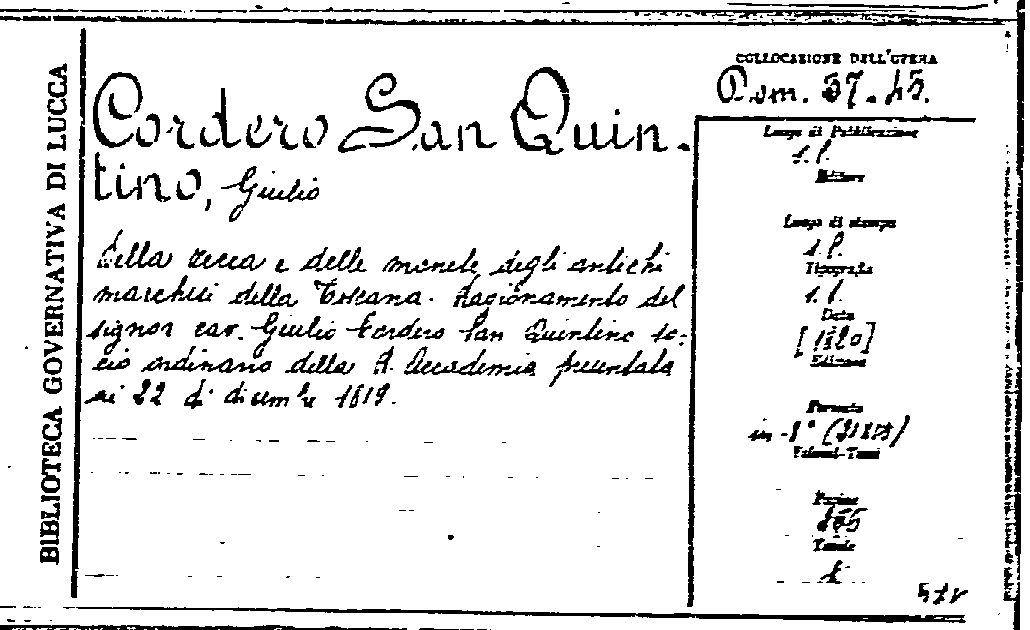 BIBLIOTECA GOVERNATIVA DI LUCCA
Cordero San Quin-
tino, Giulio
Della zecca e delle monete degli antichi
marchesi della Toscana. Ragionamento del
signor cav. Giulio Cordero San Quintino so-
cio ordinario della R. Accademia presentata
ai 22 di dicembre 1819.
COLLOCAZIONE DELL'OPERA
Dom. 37.45.
Luogo di Pubblicazione
s.l.
Editore
Luogo di stampa
s.l.
Tipografia
s.t.
Data
[1820]
Edizione
Formato
in-8°
Volumi-Tomi
Pagine
Tavole